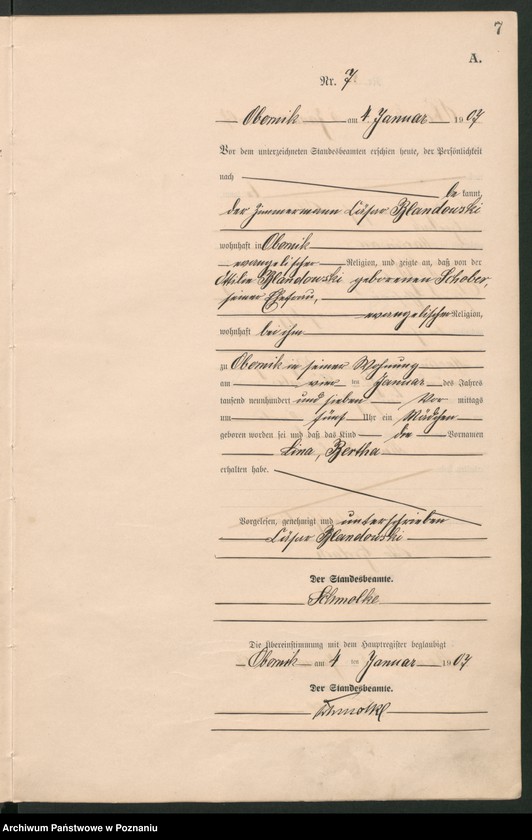 7
A.
Nr. 7
Obornik am 4 Januar 1907
Vor dem unterzeichneten Standesbeamten erschien heute, der Persönlichkeit
nach
be kannt,
der Zimmermann Cäsar Blandowski
wohnhaft in Obornik
evangelischer Religion, und zeigte an, daß von der
Ottilie Blandowski geborenen Schober,
seiner Ehefrau,
evangelischer Religion,
wohnhaft bei ihm
zu Obornik in seiner Wohnung
am vier ten Januar des Jahres
tausend neunhundert und sieben Vor mittags
um fünf Uhr ein Mädchen
geboren worden sei und daß das Kind die Vornamen
Lina, Bertha
erhalten habe.
Vorgelesen, genehmigt und unterschrieben
Cäsar Blandowski
Der Standesbeamte.
Schmolke
Die Übereinstimmung mit dem Hauptregister beglaubigt
Obornik am 4 ten Januar 1907
Der Standesbeamte.
Schmolke
Archiwum Państwowe w Poznaniu